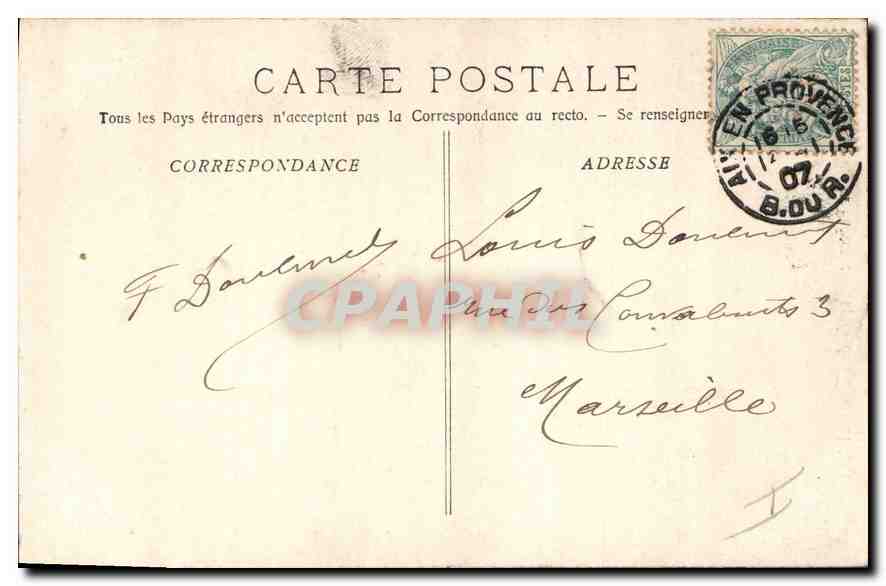 CARTE POSTALE
Tous les Pays étrangers n'acceptent pas la Correspondance au recto. - Se renseigner
CORRESPONDANCE
ADRESSE
AIX EN PROVENCE
07
B. DU R.
F
Louis
rue des 3
Marseille
CPAPHIL